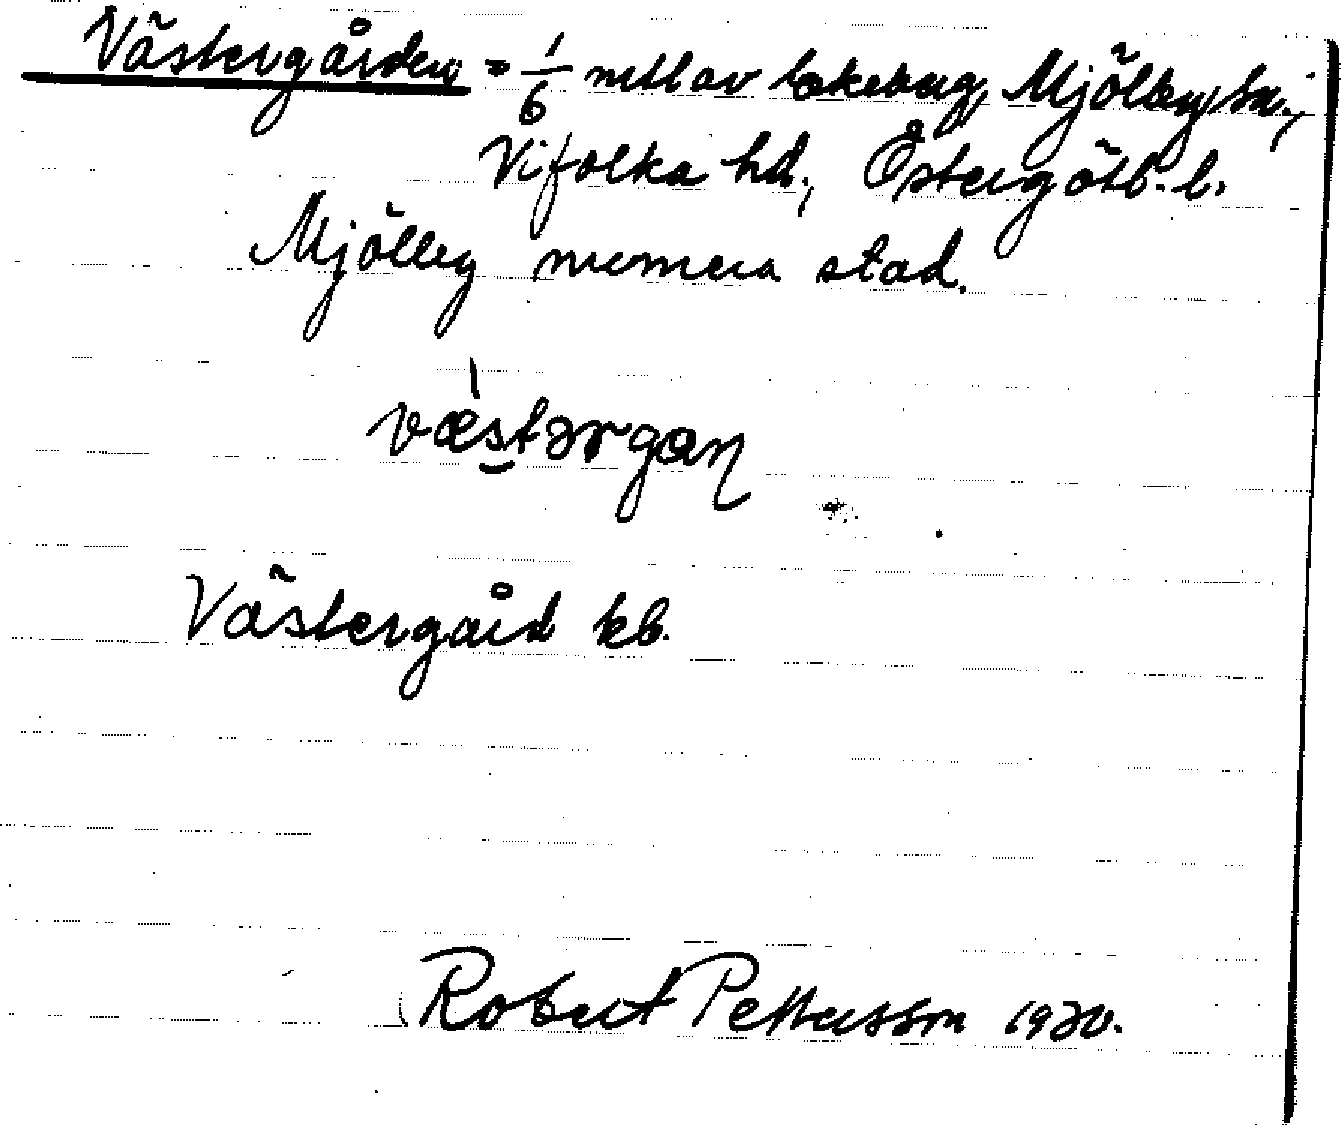 Västergården = 1/6 mtl av Lekeberg, Mjölby sn.,
Vifolka hd., Östergötl. l.
Mjölby numera stad.
væ̀stərgɑɳ
Västergård kb.
Robert Pettersson 1930.